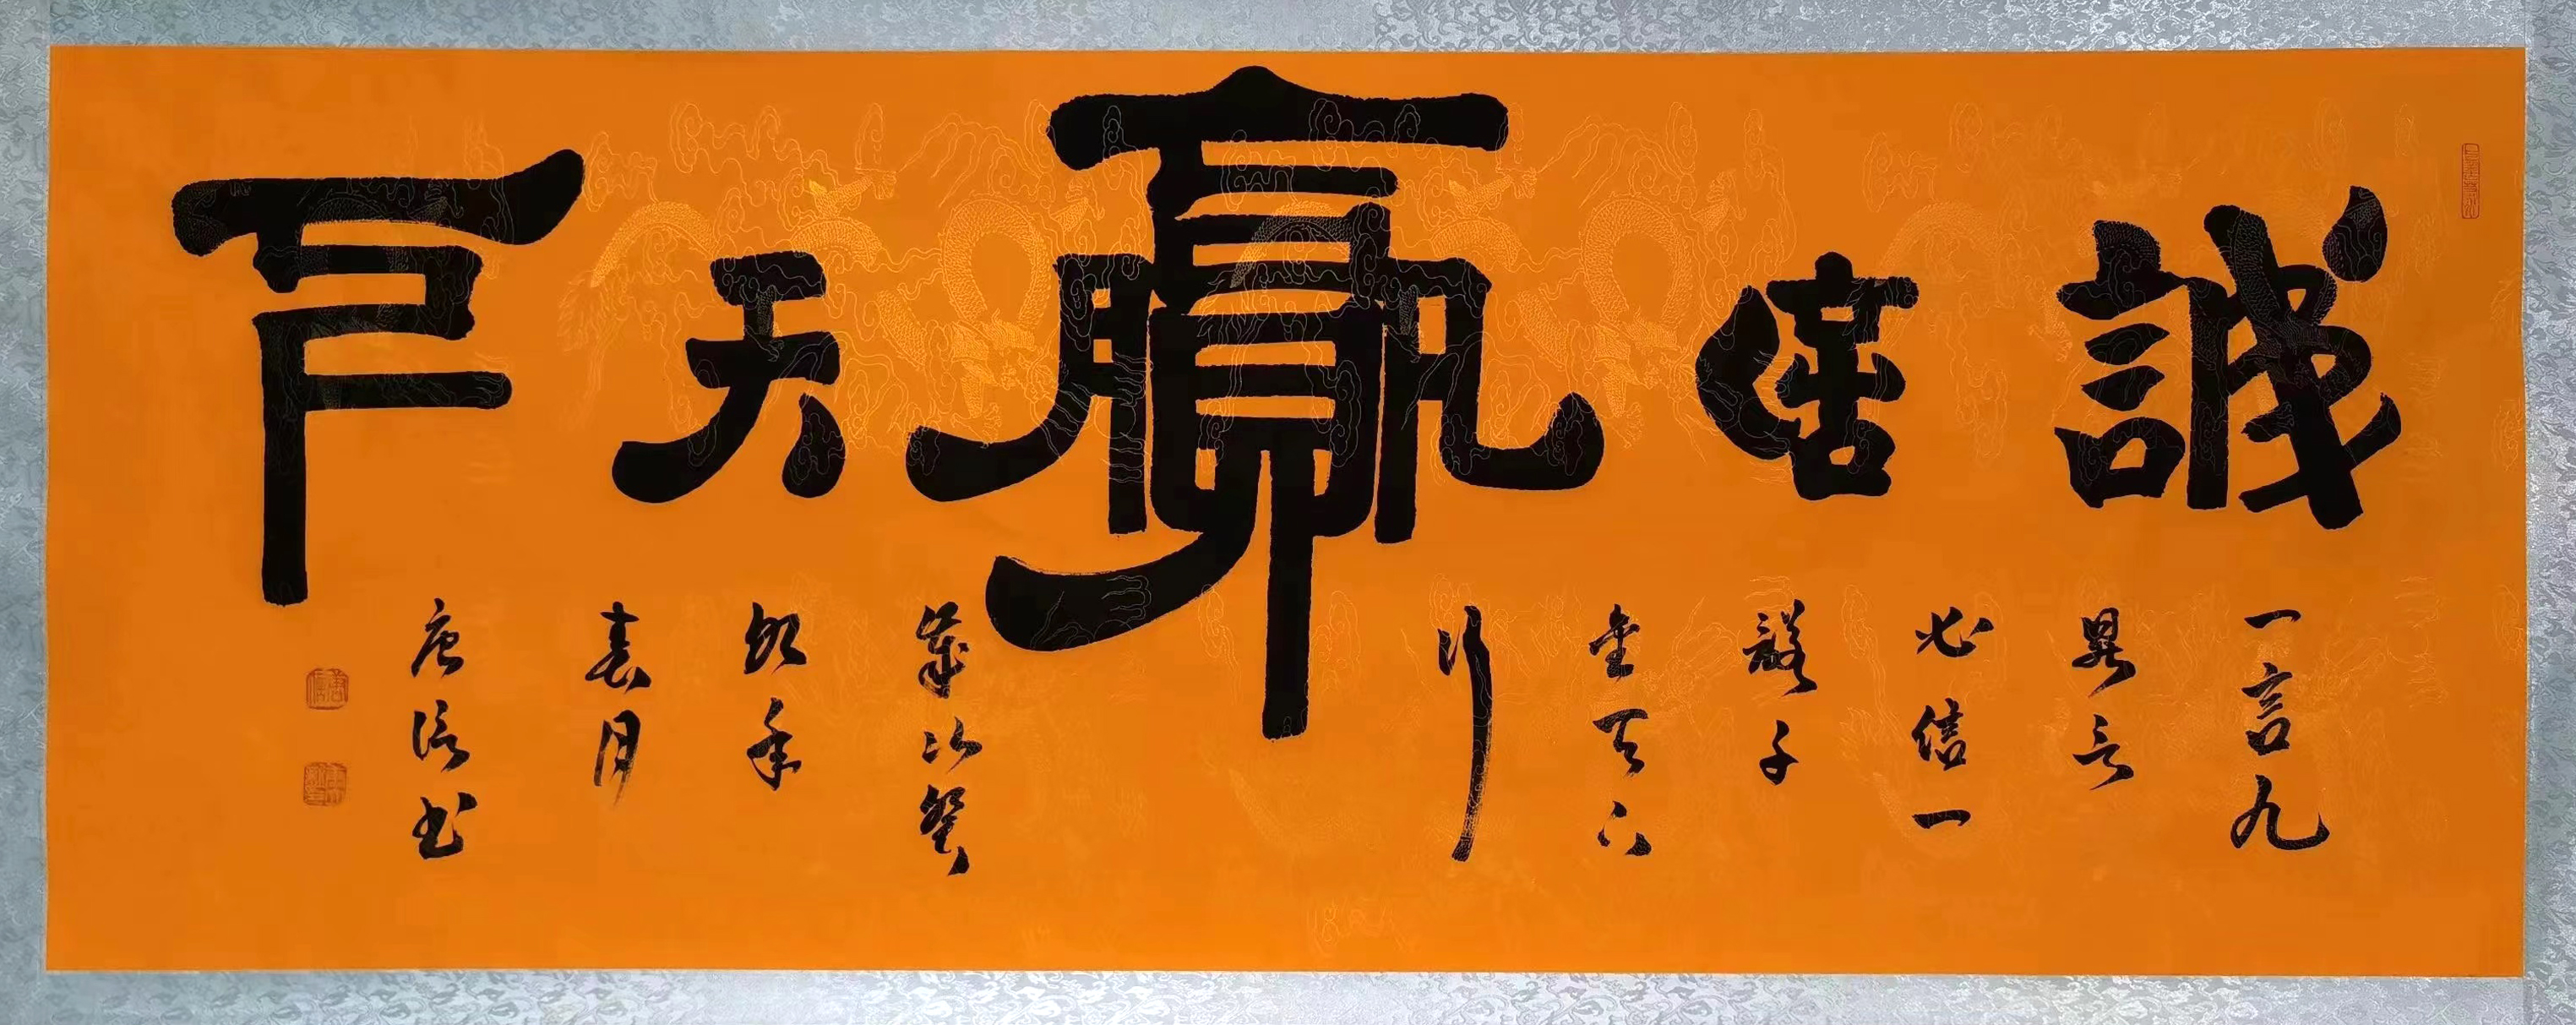 誠信贏天下
一言九
鼎言
必信一
諾千
金天下
行
歲次癸
卯年
春月
唐书